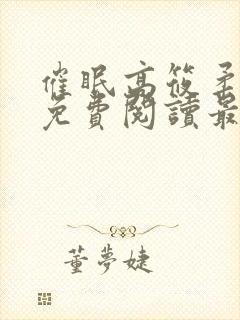 催眠高筱柔
免費閱讀最
董夢婕